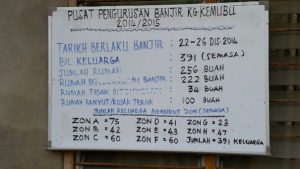 PUSAT PENGURUSAN BANJIR KG.KEMUBU
2014/2015
TARIKH BERLAKU BANJIR : 22-26 DIS 2014
BIL KELUARGA : 391 (SEMASA)
JUMLAH RUMAH : 256 BUAH
RUMAH DITENGGELAMI BANJIR : 222 BUAH
RUMAH TIDAK : 34 BUAH
RUMAH HANYUT/ROSAK TERUK : 100 BUAH
JUMLAH KELUARGA MENGIKUT ZON (SEMASA)
ZON A = 75 ZON D = 41 ZON G = 23
ZON B = 42 ZON E = 43 ZON H = 47
ZON C = 60 ZON F = 60 JUMLAH = 391 KELUARGA